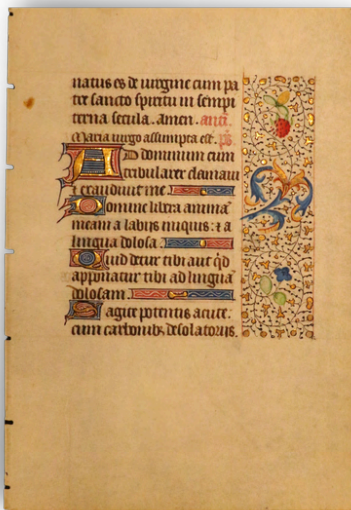 natus es de virgine cum pa
tre sancto spiritu in sempi
terna secula. amen. anti.
Maria virgo assumpta est. ps.
Ad dominum cum
tribularer clamavi
et exaudivit me.
Domine libera anima
meam a labiis iniquis: et a
lingua dolosa.
Quid detur tibi aut qd
apponatur tibi ad lingua
dolosam.
Sagitte potentis acute:
cum carbonib desolatoriis.